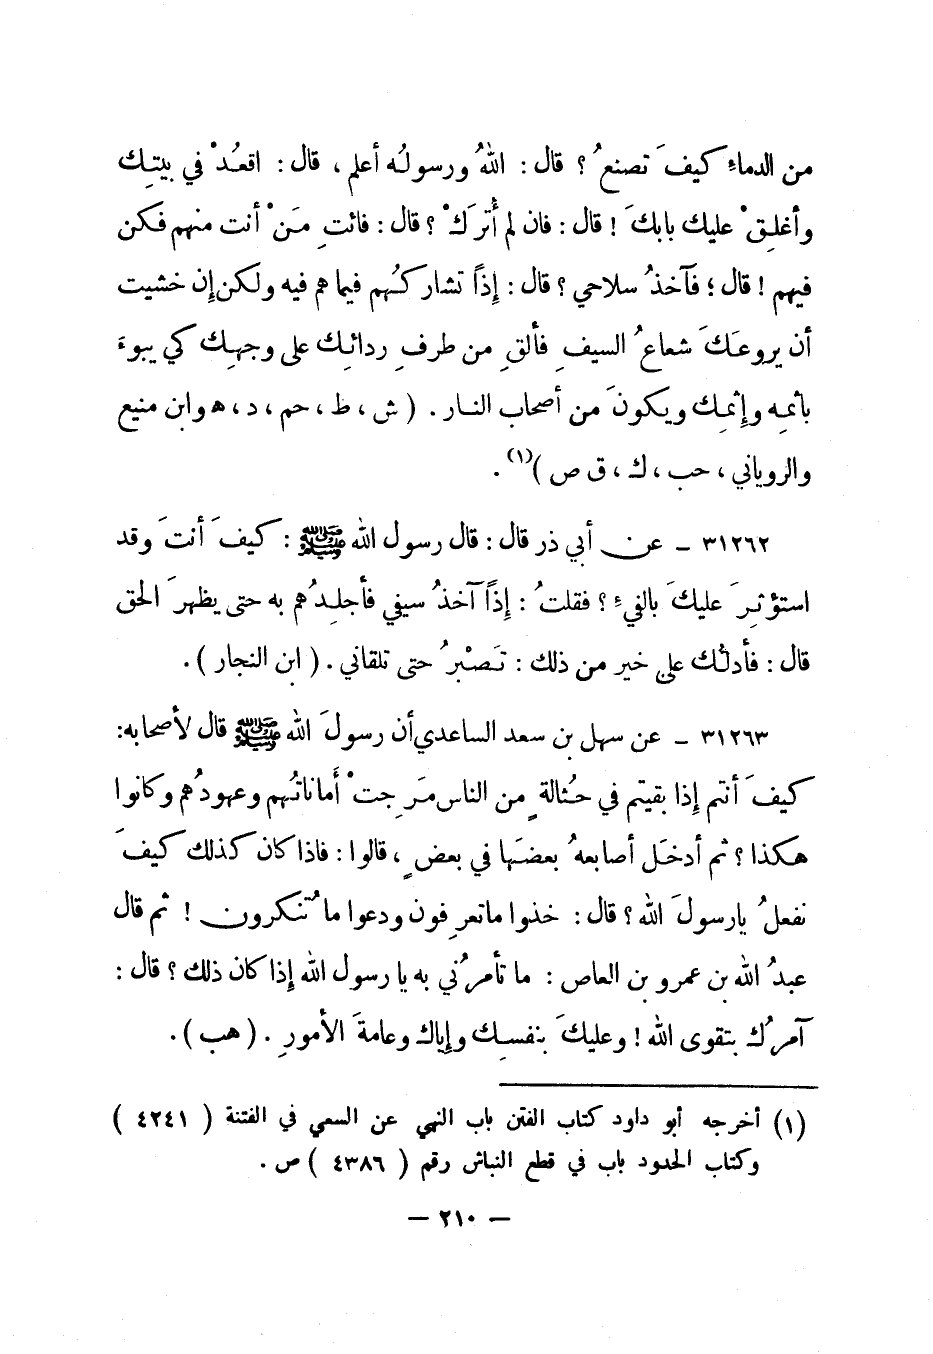 من الدماءِ كيفَ تصنعُ ؟ قال : اللهُ ورسولُه أعلم ، قال : اقعُدْ في بيتِك
وأغلِقْ عليك بابكَ ! قال : فان لم أُترَكْ ؟ قال : فائتِ مَنْ أنت منهم فكن
فيهم ! قال ؛ فآخذُ سلاحي ؟ قال : إذاً تشاركُهم فيما هم فيه ولكن إن خشيت
أن يروعَكَ شعاعُ السيفِ فألقِ من طرفِ ردائِك على وجهِك كي يبوءَ
باثمِه وإثمِك ويكونَ من أصحاب النار . ( ش ، ط ، حم ، د ، ه وابن منيع
والروياني ، حب ، ك ، ق ص )(١) .
٣١٢٦٢ ـ عن أبي ذر قال : قال رسول الله ﷺ : كيفَ أنتَ وقد
استؤثِرَ عليكَ بالفيءِ ؟ فقلتُ : إذاً آخذُ سيفي فأجلِدُهم به حتى يظهرَ الحق
قال : فأدلُّك على خير من ذلك : تَصْبرُ حتى تلقاني . ( ابن النجار ) .
٣١٢٦٣ ـ عن سهل بن سعد الساعدي أن رسولَ الله ﷺ قال لأصحابه :
كيفَ أنتم إذا بقيتم في حُثالةٍ من الناس مَرِجتْ أماناتُهم وعهودُهم وكانوا
هكذا ؟ ثم أدخَل أصابعهُ بعضَها في بعضٍ ، قالوا : فاذا كان كذلك كيفَ
نفعلُ يا رسولَ الله ؟ قال : خذوا ما تعرِفون ودعوا ما تُنكرون ! ثم قال
عبدُ الله بن عمرو بن العاص : ما تأمرُني به يا رسول الله إذا كان ذلك ؟ قال :
آمرُك بتقوى الله ! وعليكَ بنفسِك وإياك وعامةَ الأمورِ . ( هب ) .
(١) أخرجه أبو داود كتاب الفتن باب النهي عن السعي في الفتنة ( ٤٢٤١ )
وكتاب الحدود باب في قطع النباش رقم ( ٤٣٨٦ ) ص .
— ٢١٠ —